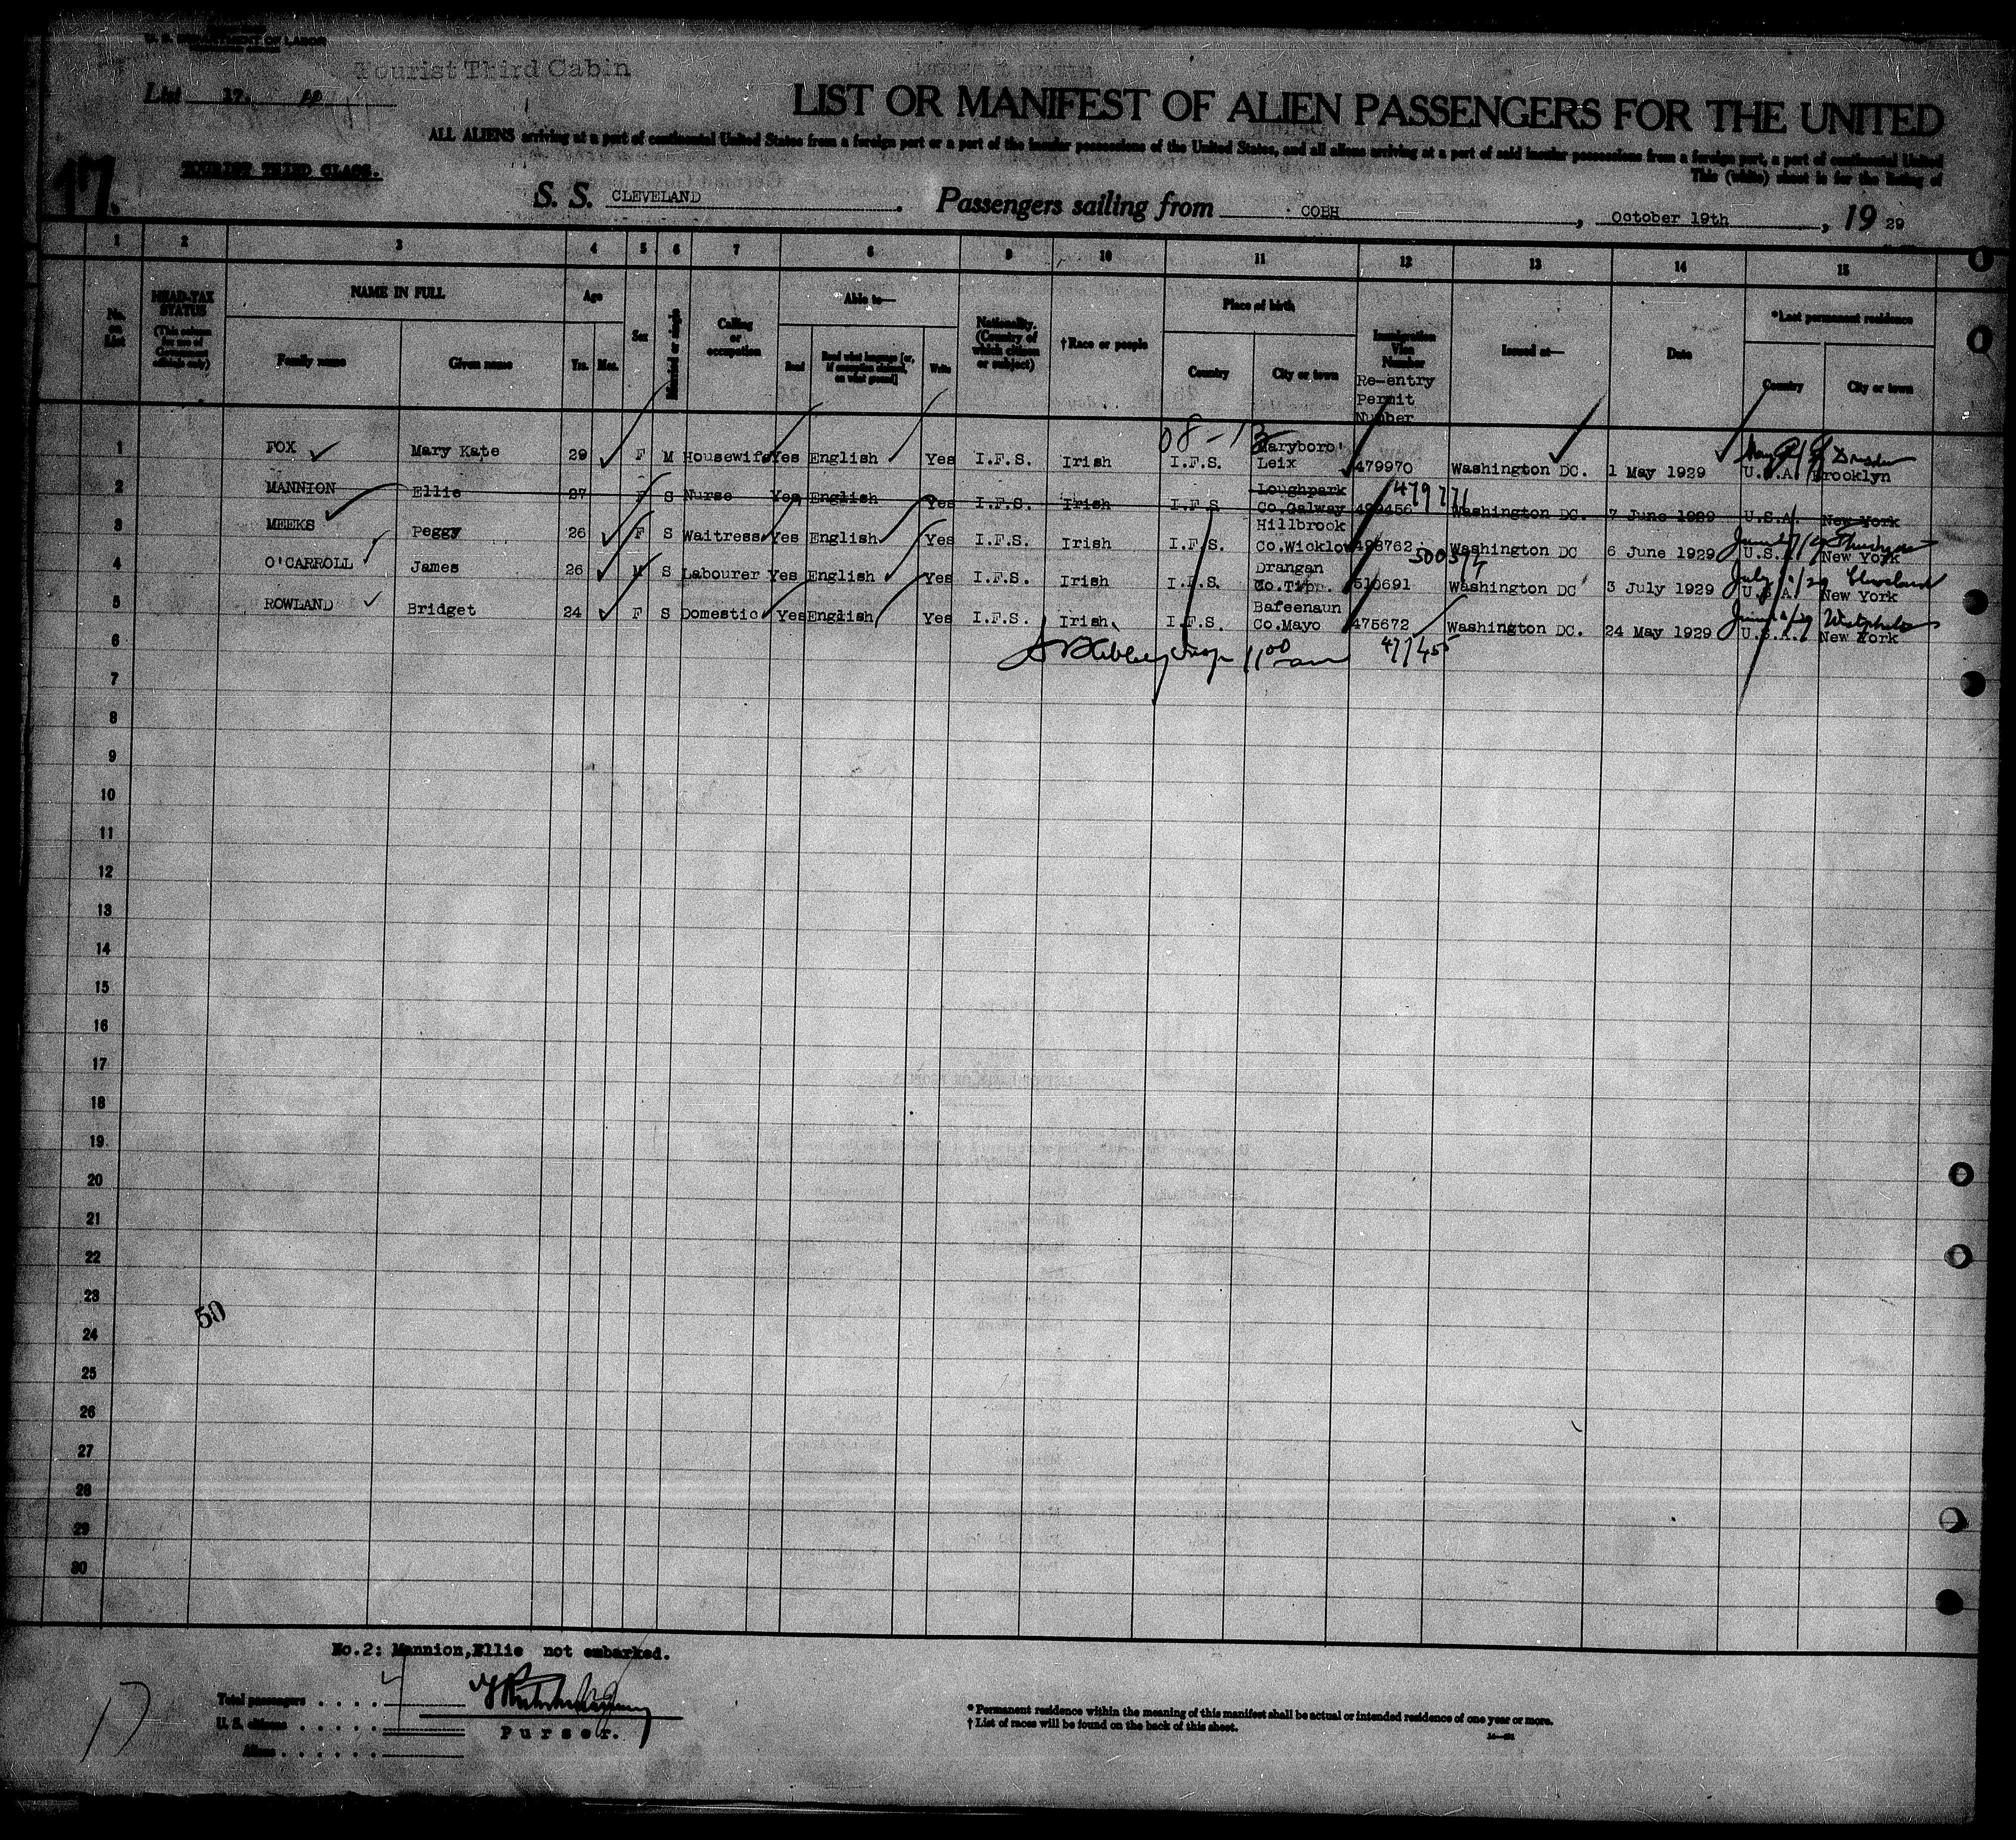 U. S. DEPARTMENT OF LABOR
Tourist Third Cabin
List 17.
LIST OR MANIFEST OF ALIEN PASSENGERS FOR THE UNITED
ALL ALIENS arriving at a port of continental United States from a foreign port or a port of the insular possessions of the United States, and all aliens arriving at a port of said insular possessions from a foreign port, a port of continental United
This (white) sheet is for the listing of
17.
TOURIST THIRD CLASS.
S. S. CLEVELAND. Passengers sailing from COBH, October 19th, 1929
1 2 3 4 5 6 7 8 9 10 11 12 13 14 15
No. on List
HEAD-TAX STATUS (This column for use of Government officials only)
NAME IN FULL Family name Given name
Age Yrs. Mos.
Sex
Married or single
Calling or occupation
Able to— Read Read what language [or, if exemption claimed, on what ground] Write
Nationality. (Country of which citizen or subject)
†Race or people
Place of birth Country City or town
Immigration Visa Number Re-entry Permit Number
Issued at—
Date
*Last permanent residence Country City or town
08-13
1 FOX Mary Kate 29 F M Housewife Yes English Yes I.F.S. Irish I.F.S. Maryboro' Leix 479970 Washington DC. 1 May 1929 U.S.A. Brooklyn
2 MANNION Ellie 27 F S Nurse Yes English Yes I.F.S. Irish I.F.S Loughpark Co.Galway 499456 Washington DC. 7 June 1929 U.S.A. New York
3 MEEKS Peggy 26 F S Waitress Yes English Yes I.F.S. Irish I.F.S. Hillbrook Co.Wicklow 498762 Washington DC 6 June 1929 U.S.A. New York
4 O'CARROLL James 26 M S Labourer Yes English Yes I.F.S. Irish I.F.S. Drangan Co.Tipp. 510691 Washington DC 3 July 1929 Cleveland U.S.A. New York
5 ROWLAND Bridget 24 F S Domestic Yes English Yes I.F.S. Irish I.F.S. Bafeenaun Co.Mayo 475672 Washington DC. 24 May 1929 U.S.A. New York
6
7
8
9
10
11
12
13
14
15
16
17
18
19
20
21
22
23
50
24
25
26
27
28
29
30
No.2: Mannion,Ellie not embarked.
17
Total passengers . . . . 4
U. S. citizens . . . . .
Aliens . . . . . .
Purser.
* Permanent residence within the meaning of this manifest shall be actual or intended residence of one year or more.
† List of races will be found on the back of this sheet.